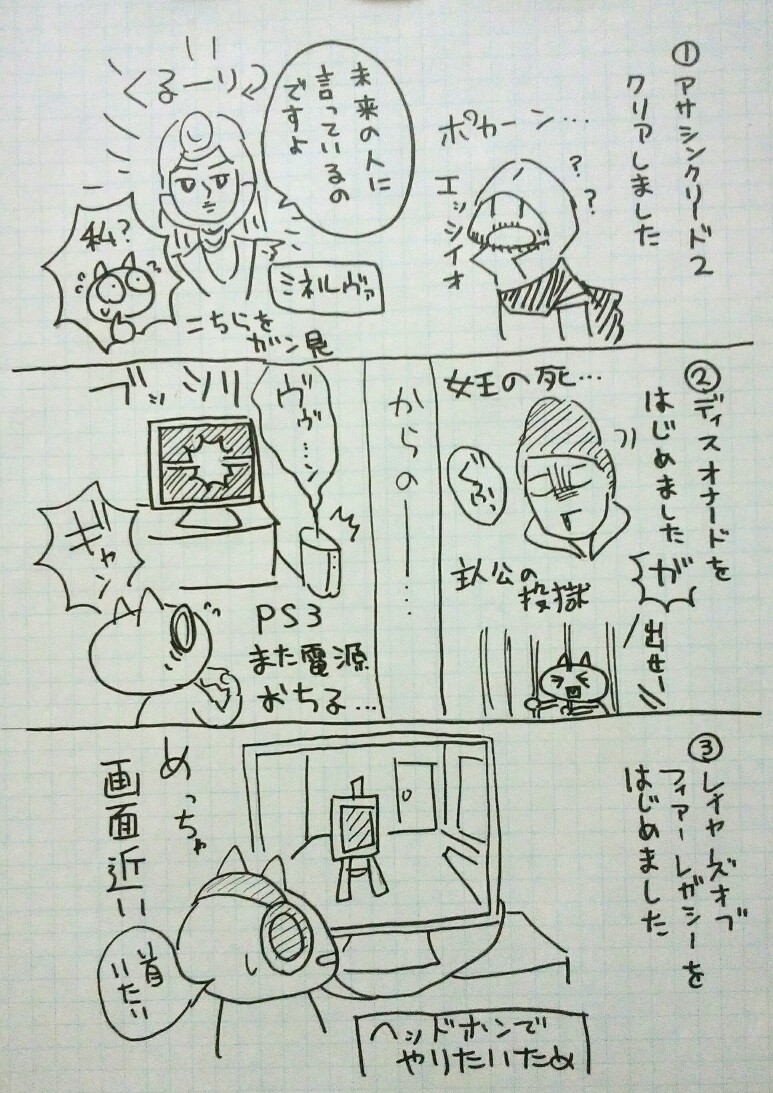 ①アサシンクリード2
クリアしました
ポカーン…
??
エッツィオ
未来の人に
言っているの
ですよ
くるーり
ミネルヴァ
こちらを
ガン見
私?
②ディスオナードを
はじめました
が
女王の死…
ぐふっ
主人公の
投獄
出せー!!
からの――…
ヴヴ…ン
ブッツリ
ギャン
PS3
また電源
おちる…
③レイヤーズオブ
フィアーレガシーを
はじめました
めっちゃ
画面近い
首
いたい
ヘッドホンで
やりたいため